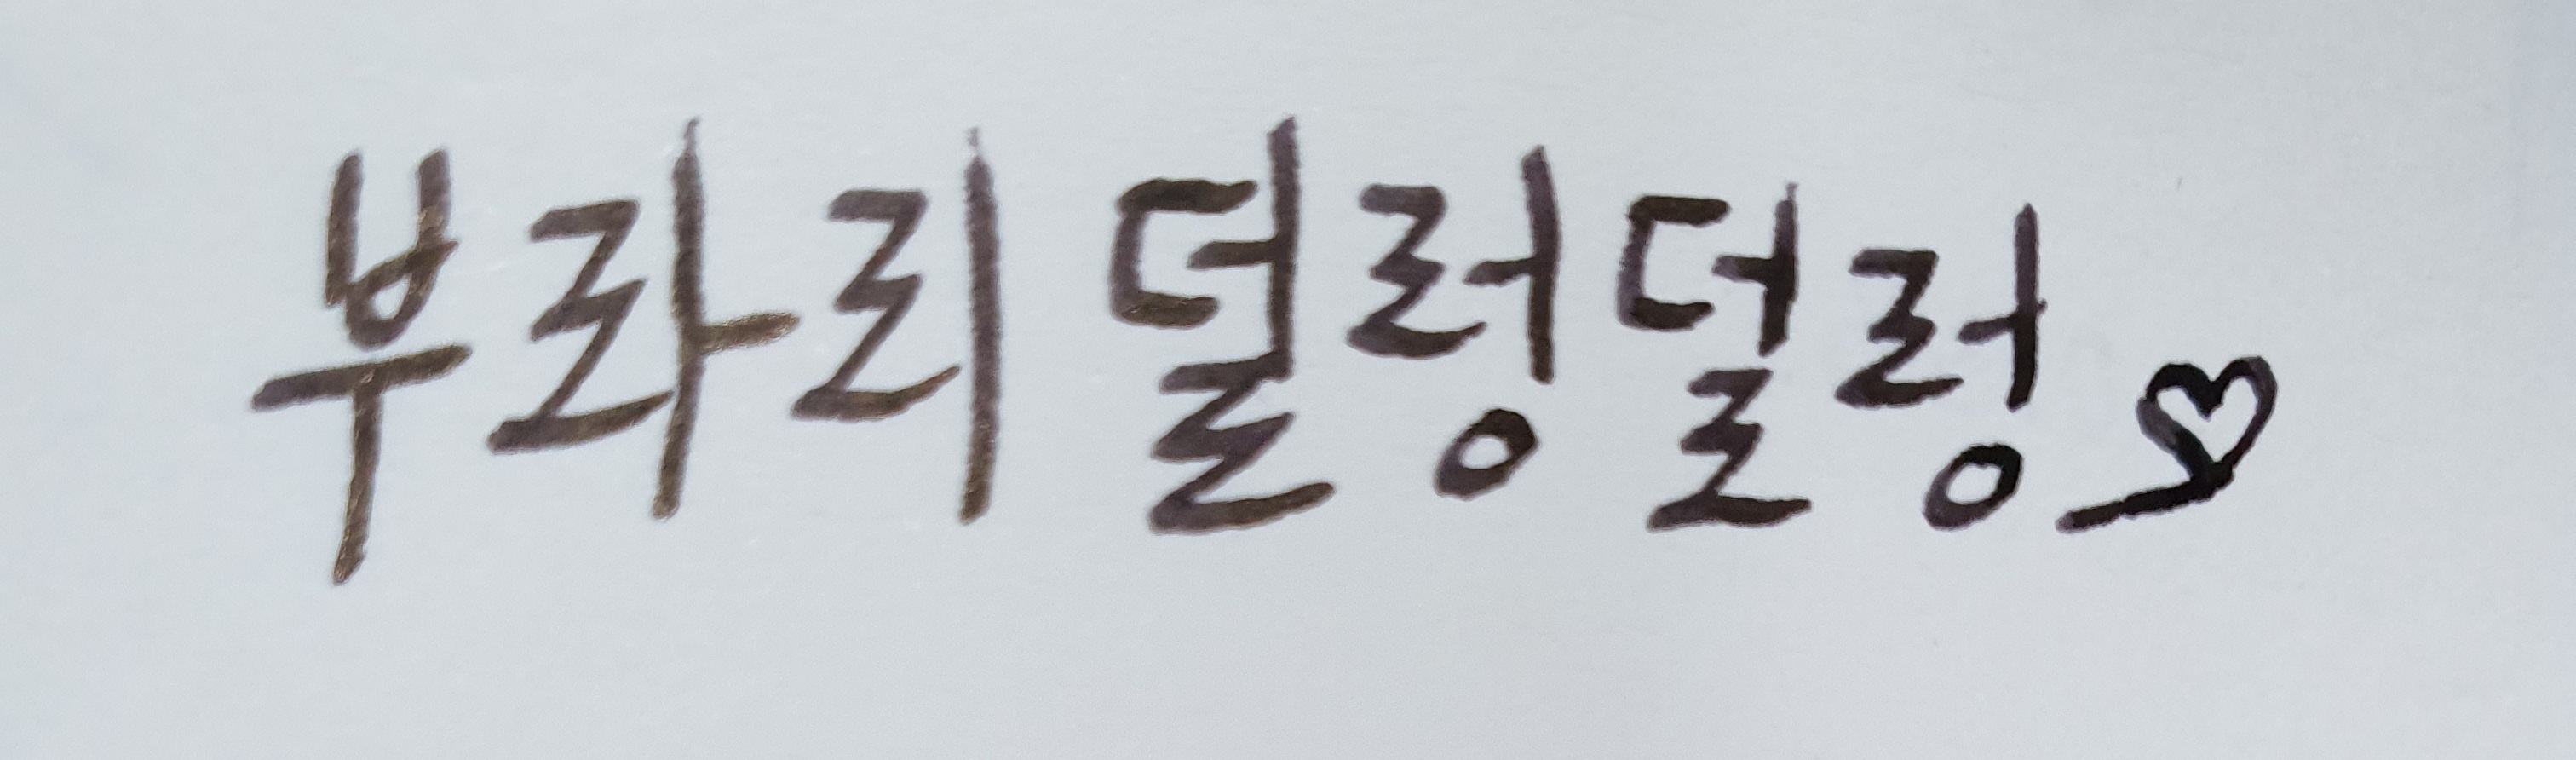 부라리 덜렁덜렁♡